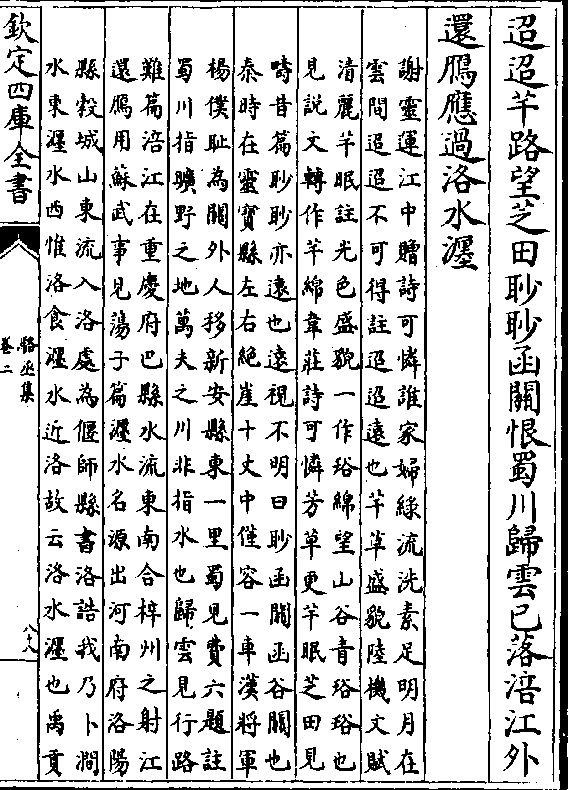 迢迢芊路望芝田眇眇函關恨蜀川歸雲已落涪江外
還鴈應過洛水瀍
謝靈運江中贈詩可憐誰家婦緣流洗素足明月在
雲間迢迢不可得註迢迢遠也芊草盛貌陸機文賦
清麗芊眠註光色盛貌一作谸綿望山谷青谸谸也
見説文轉作芊綿韋莊詩可憐芳草更芊眠芝田見
疇昔篇眇眇亦遠也遠視不明曰眇函關函谷關也
泰時在靈寶縣左右絶崖十丈中僅容一車漢將軍
楊僕耻為關外人移新安縣東一里蜀見費六題註
蜀川指曠野之地萬夫之川非指水也歸雲見行路
難篇涪江在重慶府巴縣水流東南合梓州之射江
還鴈用蘇武事見蕩子篇瀍水名源出河南府洛陽
縣穀城山東流入洛處為偃師縣書洛誥我乃卜澗
水東瀍水西惟洛食瀍水近洛故云洛水瀍也禹貢
欽定四庫全書
駱丞集
卷二
八十八